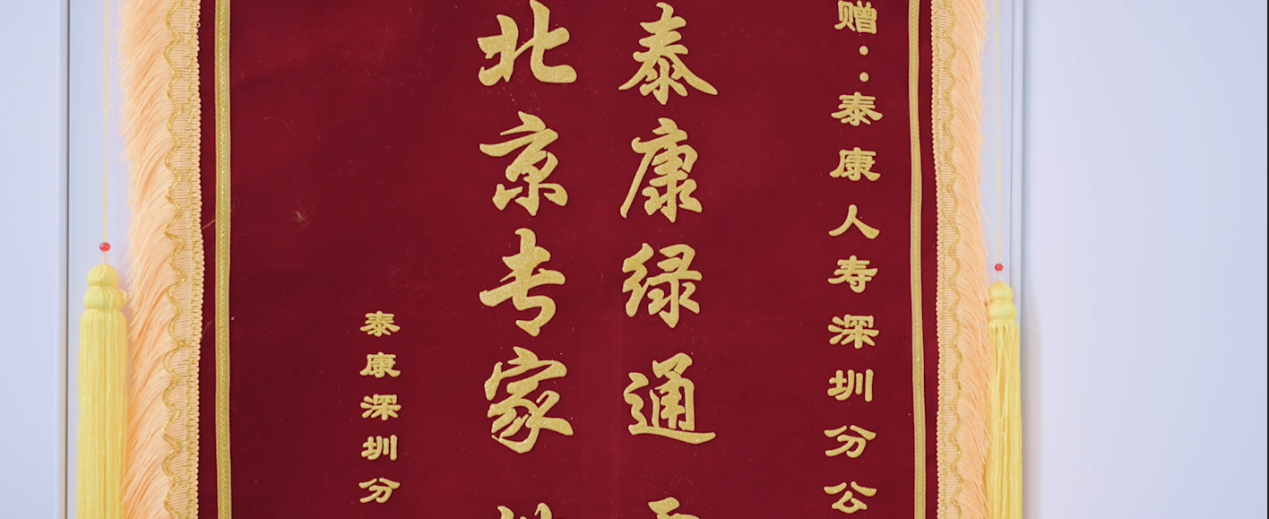 赠：泰康人寿深圳分公
泰康绿通
北京专家
泰康深圳分